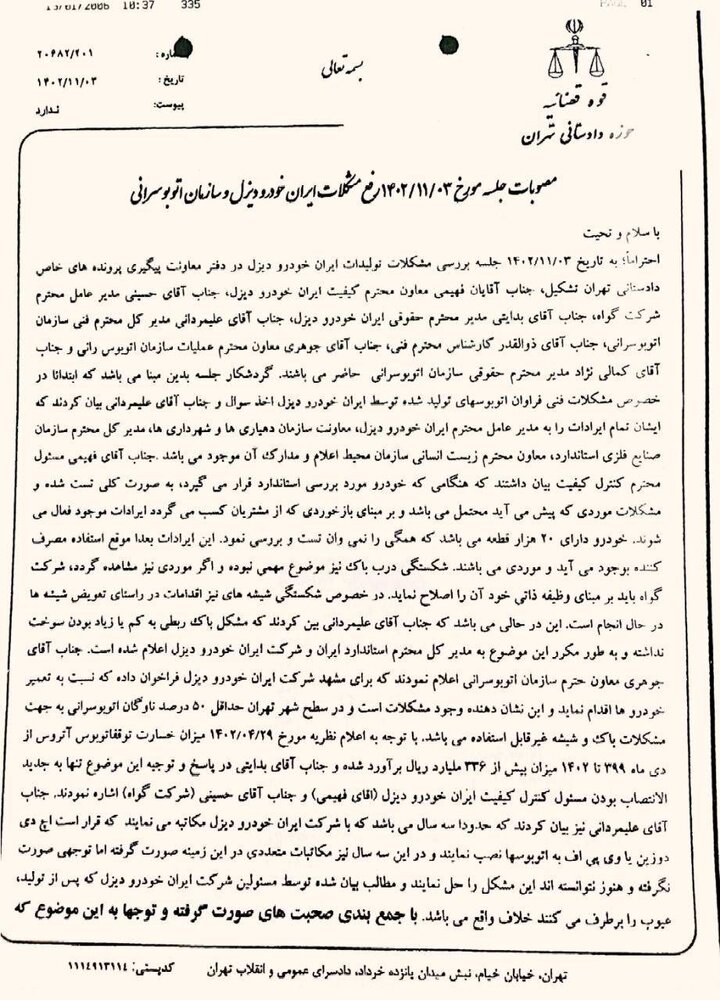 13/01/2006 10:37 335 PAGE 01
شماره: ۲۰۶۸۲/۲۰۱
تاریخ: ۱۴۰۲/۱۱/۰۳
پیوست: ندارد
بسمه تعالی
قوه قضائیه
حوزه دادستانی تهران
مصوبات جلسه مورخ ۱۴۰۲/۱۱/۰۳ رفع مشکلات ایران خودرو دیزل و سازمان اتوبوسرانی
با سلام و تحیت
احتراماً؛ به تاریخ ۱۴۰۲/۱۱/۰۳ جلسه بررسی مشکلات تولیدات ایران خودرو دیزل در دفتر معاونت پیگیری پرونده های خاص
دادستانی تهران تشکیل، جناب آقایان فهیمی معاون محترم کیفیت ایران خودرو دیزل، جناب آقای حسینی مدیر عامل محترم
شرکت گواه، جناب آقای بدایتی مدیر محترم حقوقی ایران خودرو دیزل، جناب آقای علیمردانی مدیر کل محترم فنی سازمان
اتوبوسرانی، جناب آقای ذوالقدر کارشناس محترم فنی، جناب آقای جوهری معاون محترم عملیات سازمان اتوبوس رانی و جناب
آقای کمالی نژاد مدیر محترم حقوقی سازمان اتوبوسرانی حاضر می باشند. گردشکار جلسه بدین مبنا می باشد که ابتدائا در
خصوص مشکلات فنی فراوان اتوبوسهای تولید شده توسط ایران خودرو دیزل اخذ سوال و جناب آقای علیمردانی بیان کردند که
ایشان تمام ایرادات را به مدیر عامل محترم ایران خودرو دیزل، معاونت سازمان دهیاری ها و شهرداری ها، مدیر کل محترم سازمان
صنایع فلزی استاندارد، معاون محترم زیست انسانی سازمان محیط اعلام و مدارک آن موجود می باشد .جناب آقای فهیمی مسئول
محترم کنترل کیفیت بیان داشتند که هنگامی که خودرو مورد بررسی استاندارد قرار می گیرد، به صورت کلی تست شده و
مشکلات موردی که پیش می آید محتمل می باشد و بر مبنای بازخوردی که از مشتریان کسب می گردد ایرادات موجود فعال می
شوند. خودرو دارای ۲۰ هزار قطعه می باشد که همگی را نمی وان تست و بررسی نمود. این ایرادات بعدا موقع استفاده مصرف
کننده بوجود می آید و موردی می باشند. شکستگی درب باک نیز موضوع مهمی نبوده و اگر موردی نیز مشاهده گردد، شرکت
گواه باید بر مبنای وظیفه ذاتی خود آن را اصلاح نماید. در خصوص شکستگی شیشه های نیز اقدامات در راستای تعویض شیشه ها
در حال انجام است. این در حالی می باشد که جناب آقای علیمردانی بین کردند که مشکل باک ربطی به کم یا زیاد بودن سوخت
نداشته و به طور مکرر این موضوع به مدیر کل محترم استاندارد ایران و شرکت ایران خودرو دیزل اعلام شده است. جناب آقای
جوهری معاون حترم سازمان اتوبوسرانی اعلام نمودند که برای مشهد شرکت ایران خودرو دیزل فراخوان داده که نسبت به تعمیر
خودرو ها اقدام نماید و این نشان دهنده وجود مشکلات است و در سطح شهر تهران حداقل ۵۰ درصد ناوگان اتوبوسرانی به جهت
مشکلات باک و شیشه غیرقابل استفاده می باشد. با توجه به اعلام نظریه مورخ ۱۴۰۲/۰۴/۲۹ میزان خسارت توقفاتوبوس آتروس از
دی ماه ۳۹۹ تا ۱۴۰۲ میزان بیش از ۳۳۶ ملیارد ریال برآورد شده و جناب آقای بدایتی در پاسخ و توجیه این موضوع تنها به جدید
الانتصاب بودن مسئول کنترل کیفیت ایران خودرو دیزل (اقای فهیمی) و جناب آقای حسینی (شرکت گواه) اشاره نمودند. جناب
آقای علیمردانی نیز بیان کردند که حدودا سه سال می باشد که با شرکت ایران خودرو دیزل مکاتبه می نمایند که قرار است اچ دی
دوزین یا وی پی اف به اتوبوسها نصب نمایند و در این سه سال نیز مکاتبات متعددی در این زمینه صورت گرفته اما توجهی صورت
نگرفته و هنوز نتوانسته اند این مشکل را حل نمایند و مطالب بیان شده توسط مسئولین شرکت ایران خودرو دیزل که پس از تولید،
عیوب را برطرف می کنند خلاف واقع می باشد. با جمع بندی صحبت های صورت گرفته و توجها به این موضوع که
تهران، خیابان خیام، نبش میدان پانزده خرداد، دادسرای عمومی و انقلاب تهران کدپستی: ۱۱۱۴۹۱۳۱۱۴